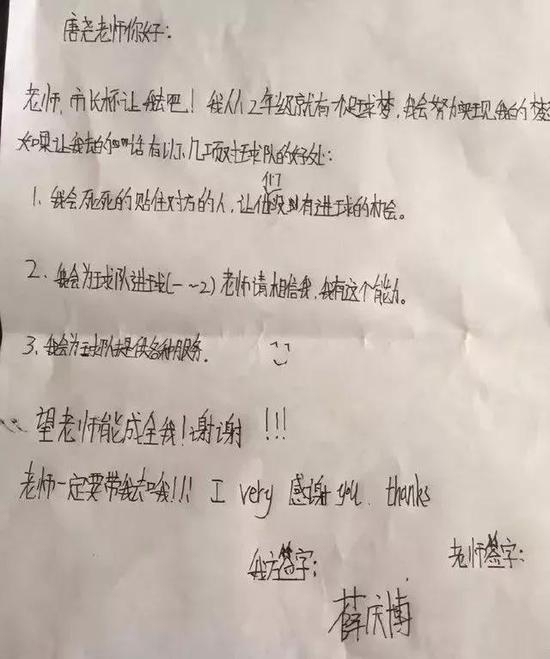 唐尧老师你好：
老师，市长杯让我去吧！我从2年级就有个足球梦，我会努力实现我的梦
如果让我去的话有以下几项对球队的好处：
1、我会死死的贴住对方的人，让他们没有进球的机会。
2、我会为球队进球(一~2)老师请相信我，我有这个能力。
3、我会为球队提供各种服务。
望老师能成全我！谢谢 !!!
老师一定要带我去哦!!! I very 感谢 you. thanks
我方签字： 老师签字：
薛庆博